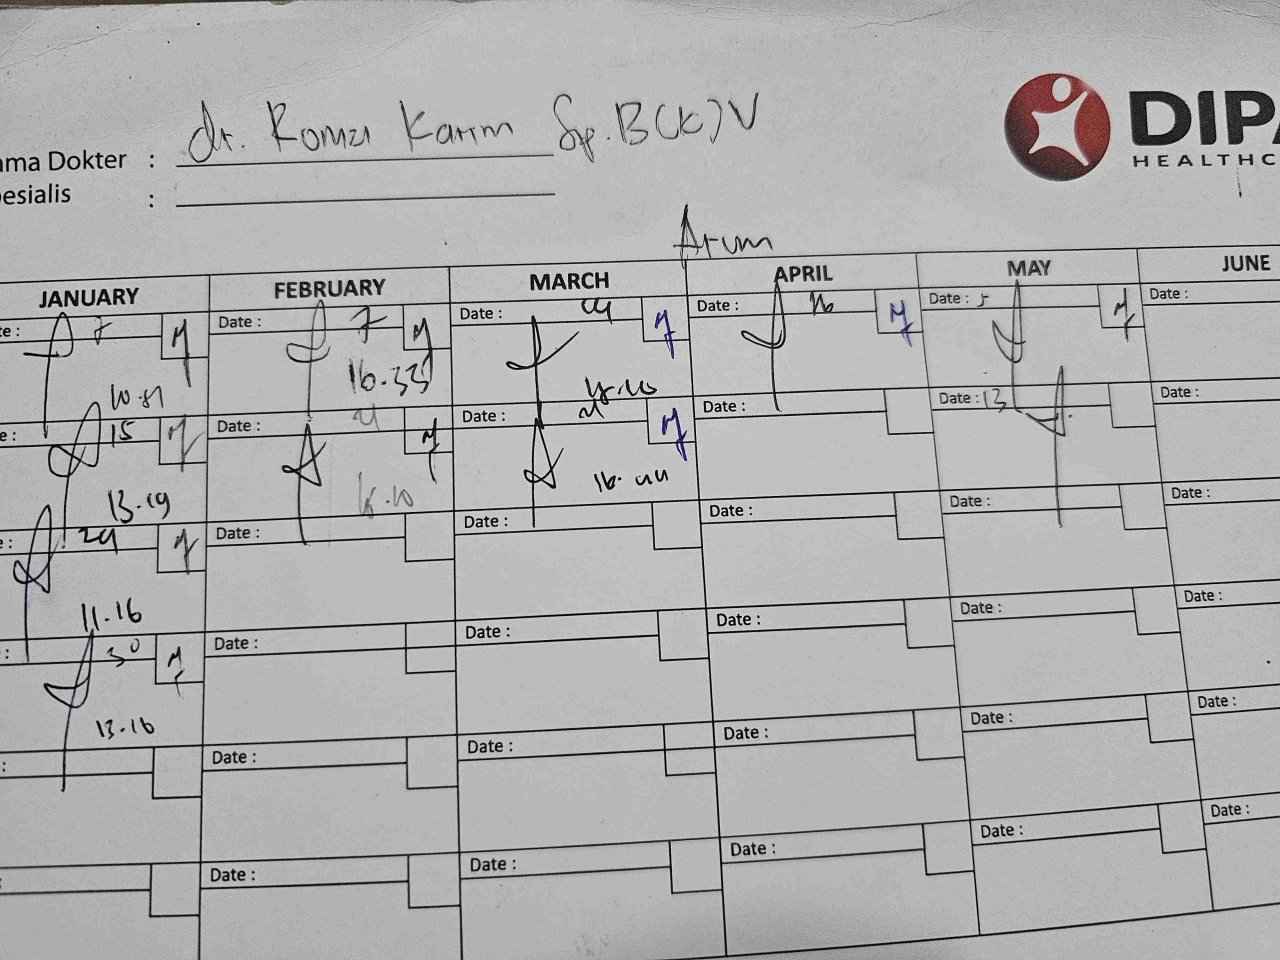 dr. Romzi Karim Sp.B(K)V
ama Dokter :
esialis :
DIPA
HEALTHC
Arum
JANUARY FEBRUARY MARCH APRIL MAY JUNE
te: 7 Date : 7 Date : Date : 16 Date : 5 Date :
10.51 16.33
e: 15 Date : Date : Date : Date : 13 Date :
13.19 16.44
e: 29 Date : Date : Date : Date : Date :
11.16
: 30 Date : Date : Date : Date : Date :
13.16
: Date : Date : Date : Date : Date :
: Date : Date : Date : Date : Date :